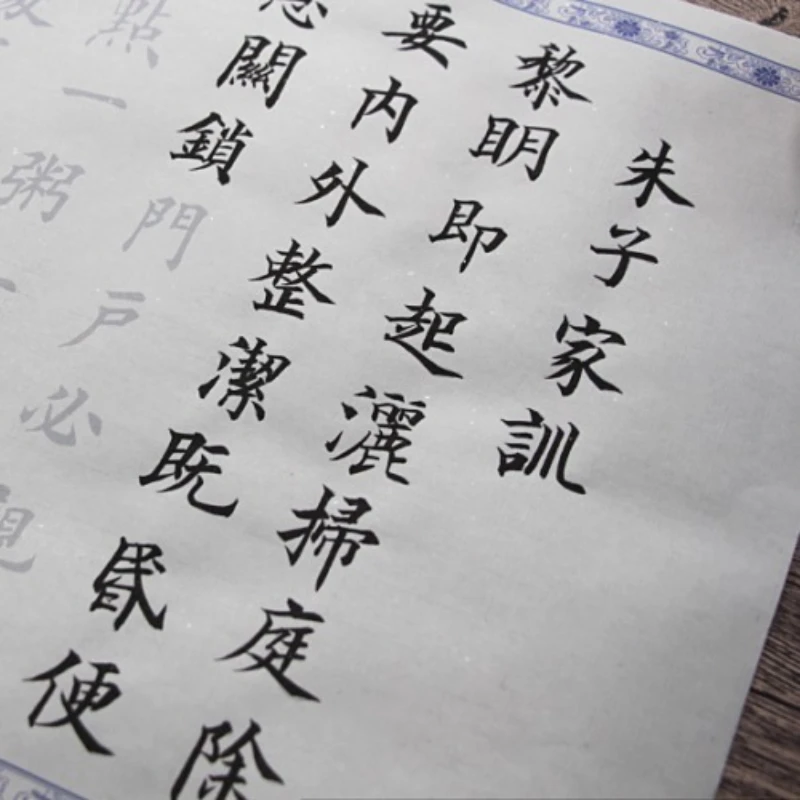 朱子家訓
黎明即起灑掃庭除
要内外整潔既昬便
息關鎖門戶必
點一粥一